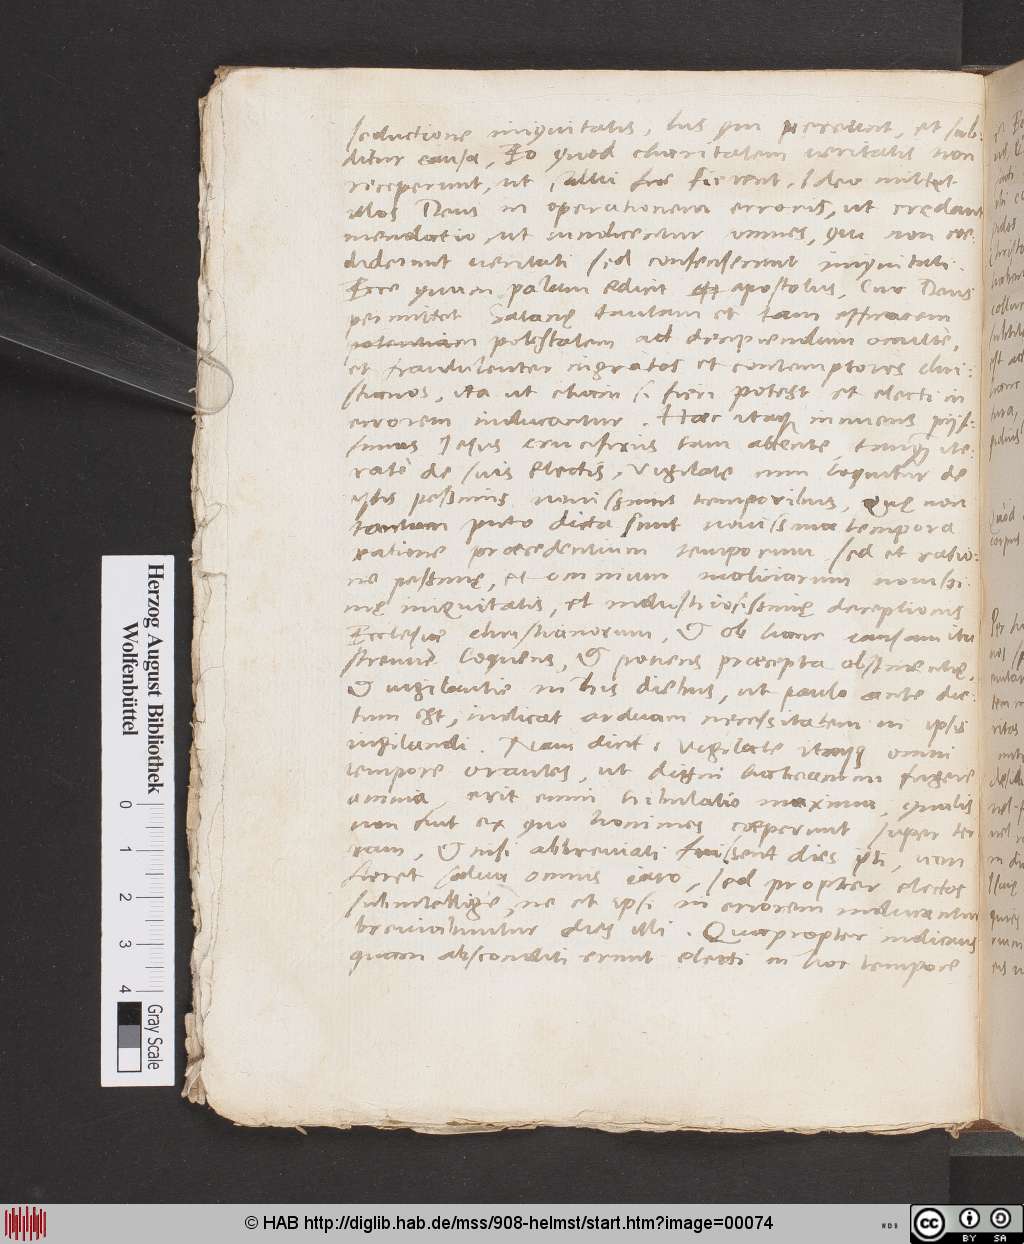 seductione iniquitatis, his qui pereunt, et sub-
ditur causa, Eo quod charitatem veritatis non
receperunt, ut salvi fierent. Ideo mittet
illos Deus in operationem erroris, ut credant
mendatio, ut iudicentur omnes, qui non cre-
diderunt veritati sed consenserunt iniquitati.
Ecce quam palam edicit apostolus, Cur Deus
permittet Satanę tantam et tam efficacem
potentiam potestatem ad decipiendum occulte,
et fraudulenter ingratos et contemptores chri-
stianos, ita ut etiam si fieri potest et electi in
errorem inducantur. Haec itaq innuens pijs-
simus Jesus crucifixus tam attente, tamq ite-
rate de suis electis, vigilate loquitur de
istis pessimis novissimis temporibus, Quę non
tantum puto dicta sunt novissima tempora
ratione praecedentium temporum sed et ratio-
ne pessimę, et omnium maliciarum novissi-
mę iniquitatis, et industriosissimę deceptionis
Ecclesiae christianorum, & ob hanc causam ita
strenue loquens, & ponens praecepta abstinentię,
& vigilantie in his diebus, ut paulo ante dic-
tum est, indicat arduam necessitatem in ipsis
vigilandi. Nam dicit: Vigilate itaq omni
tempore orantes, ut digni habeamini fugere
omnia, erit enim tribulatio maxima, qualis
non fuit ex quo homines coeperunt super ter
ram, & nisi abbreviati fuissent dies isti, non
fieret salva omnis caro, sed propter electos
subintellige, ne et ipsi in errorem inducantur
breviabuntur dies illi. Quapropter indicans
quam absconditi erunt electi in hoc tempore
Herzog August Bibliothek
Wolfenbüttel
0 1 2 3 4
Gray Scale
© HAB http://diglib.hab.de/mss/908-helmst/start.htm?image=00074
WDB
cc BY SA